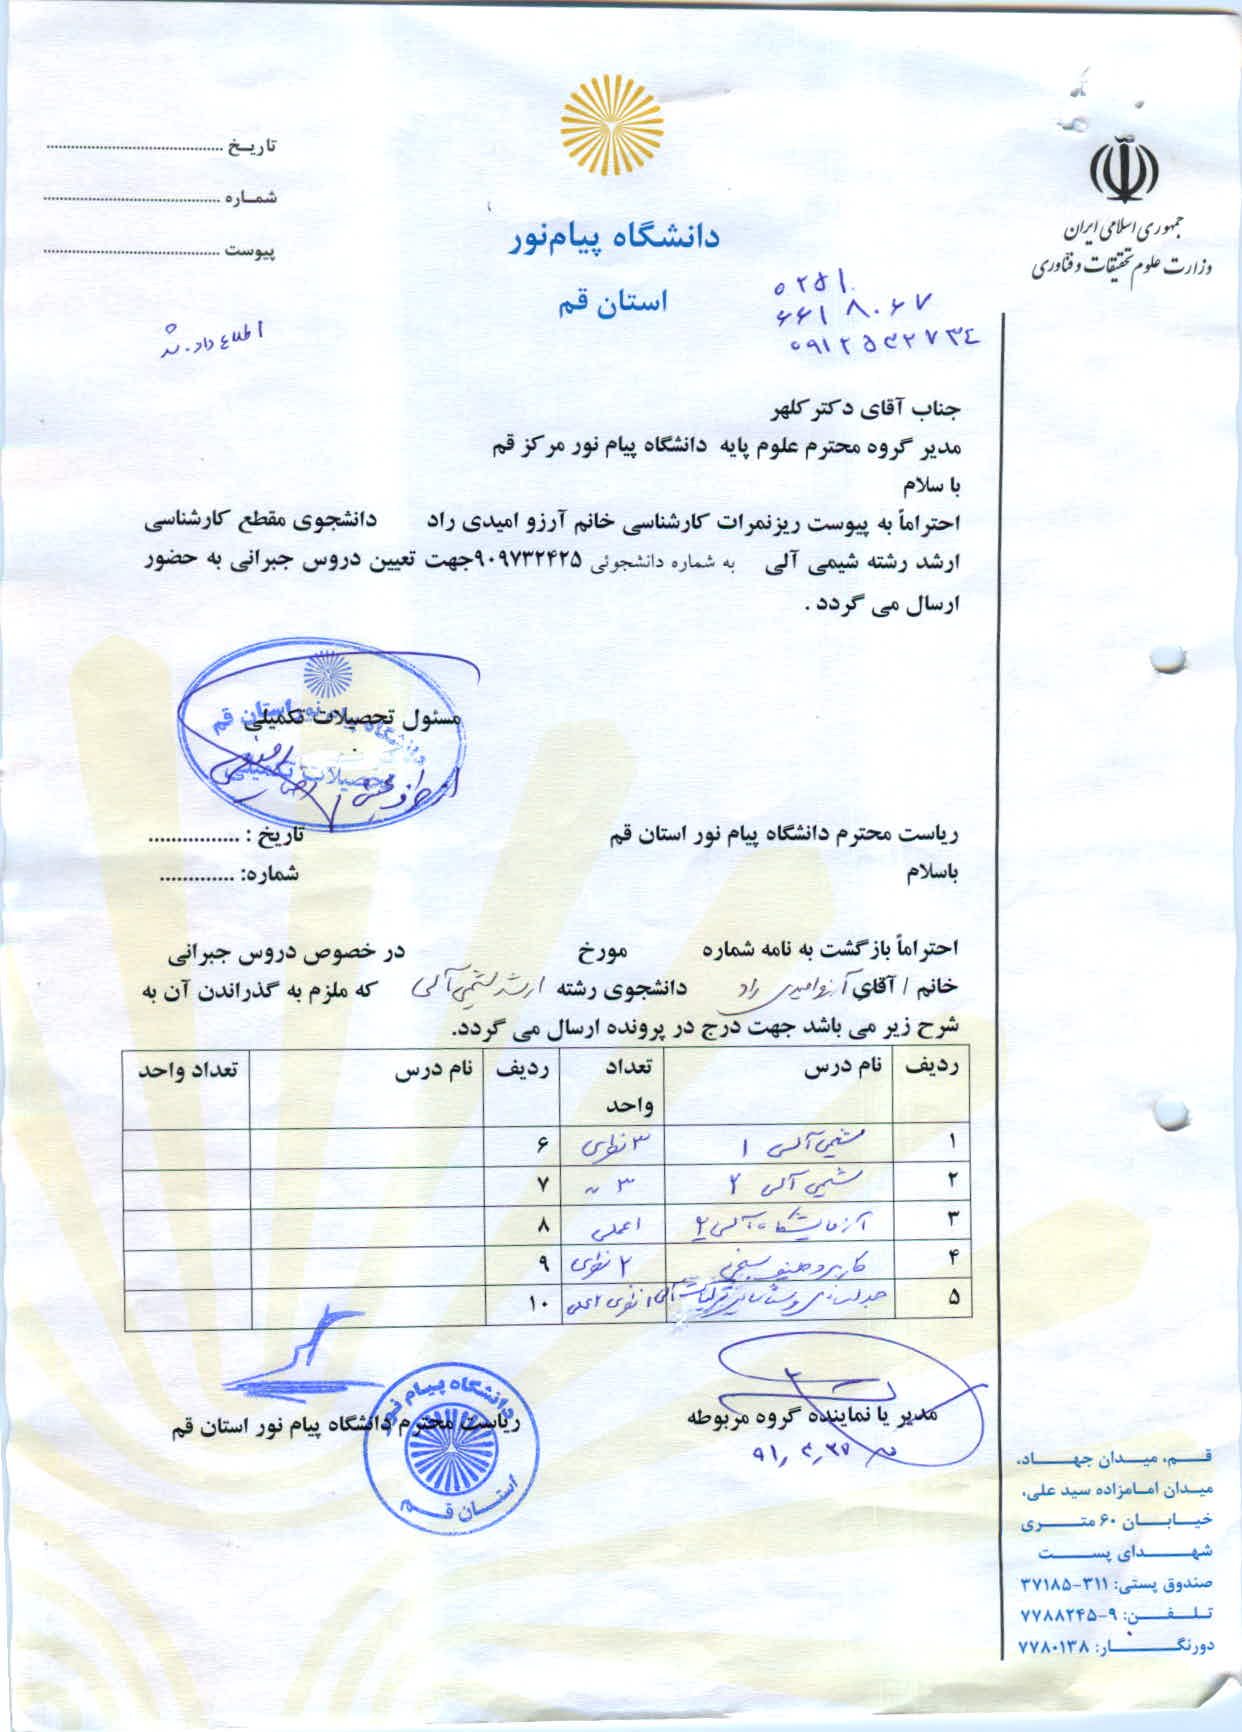 جمهوری اسلامی ایران
وزارت علوم تحقیقات و فناوری
دانشگاه پیام‌نور
استان قم
تاریخ ........................................
شماره ........................................
پیوست ........................................
۰۲۵۱
۶۶۱۸۰۶۷
۰۹۱۲۵۵۳۲۷۳۴
اطلاع داده شد
جناب آقای دکتر کلهر
مدیر گروه محترم علوم پایه دانشگاه پیام نور مرکز قم
با سلام
احتراماً به پیوست ریزنمرات کارشناسی خانم آرزو امیدی راد دانشجوی مقطع کارشناسی
ارشد رشته شیمی آلی به شماره دانشجوئی ۹۰۹۷۳۲۴۲۵جهت تعیین دروس جبرانی به حضور
ارسال می گردد .
مسئول تحصیلات تکمیلی
دانشگاه پیام نور استان قم
تحصیلات تکمیلی
از طرف
ریاست محترم دانشگاه پیام نور استان قم
تاریخ : ................
باسلام
شماره: .............
احتراماً بازگشت به نامه شماره مورخ در خصوص دروس جبرانی
خانم / آقای آرزو امیدی راد دانشجوی رشته ارشد شیمی آلی که ملزم به گذراندن آن به
شرح زیر می باشد جهت درج در پرونده ارسال می گردد.
ردیف نام درس تعداد واحد ردیف نام درس تعداد واحد
۱ شیمی آلی ۱ ۳ نظری ۶
۲ شیمی آلی ۲ ۳ " ۷
۳ آزمایشگاه آلی ۲ ۱عملی ۸
۴ کاربرد طیف سنجی ۲ نظری ۹
۵ جداسازی و شناسایی ترکیبات آلی ۱ نظری ۲عملی ۱۰
مدیر یا نماینده گروه مربوطه
ریاست محترم دانشگاه پیام نور استان قم
دانشگاه پیام نور
استان قم
قم، میدان جهاد،
میدان امامزاده سید علی،
خیابان ۶۰ متری
شهدای پست
صندوق پستی: ۳۱۱-۳۷۱۸۵
تلفن: ۹-۷۷۸۸۲۴۵
دورنگار: ۷۷۸۰۱۳۸